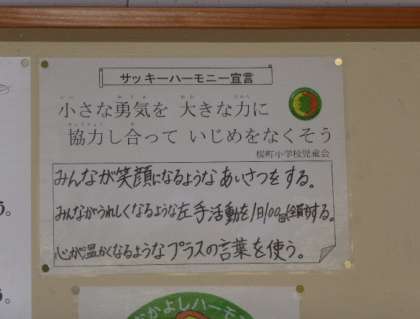 サッキーハーモニー宣言
小さな勇気を 大きな力に
協力し合って いじめをなくそう
桜町小学校児童会
みんなが笑顔になるようなあいさつをする。
みんながうれしくなるような左手活動を1日100回全員する。
心が温かくなるようなプラスの言葉を使う。
う。
かよしハーモ